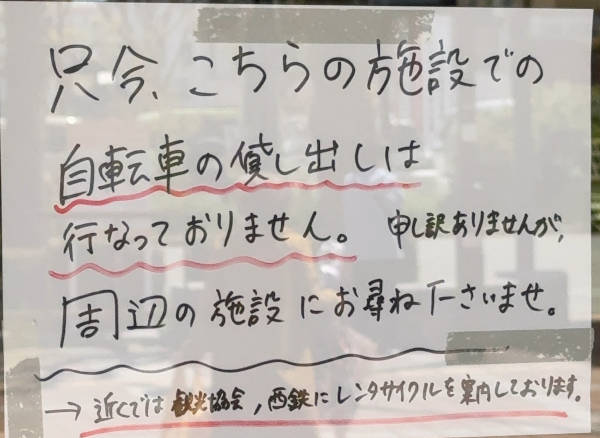 只今、こちらの施設での
自転車の貸し出しは
行なっておりません。 申し訳ありませんが、
周辺の施設にお尋ね下さいませ。
→ 近くでは観光協会,西鉄にレンタサイクルを案内しております。